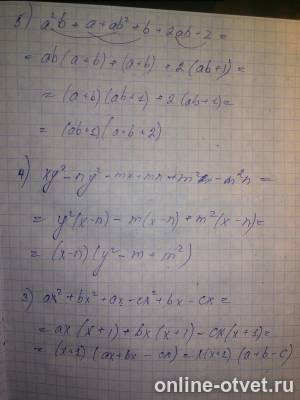 5) a²b + a + ab² + b + 2ab + 2 =
= ab(a+b) + (a+b) + 2(ab+1) =
= (a+b)(ab+1) + 2(ab+1) =
= (ab+1)(a+b+2)
4) xy² - ny² - mx - mn + m²x - m²n =
= y²(x-n) - m(x-n) + m²(x-n) =
= (x-n)(y² - m + m²)
3) ax² + bx² + ax - cx² + bx - cx =
= ax(x+1) + bx(x+1) - cx(x+1) =
= (x+1)(ax+bx-cx) = x(x+1)(a+b-c)
online-otvet.ru